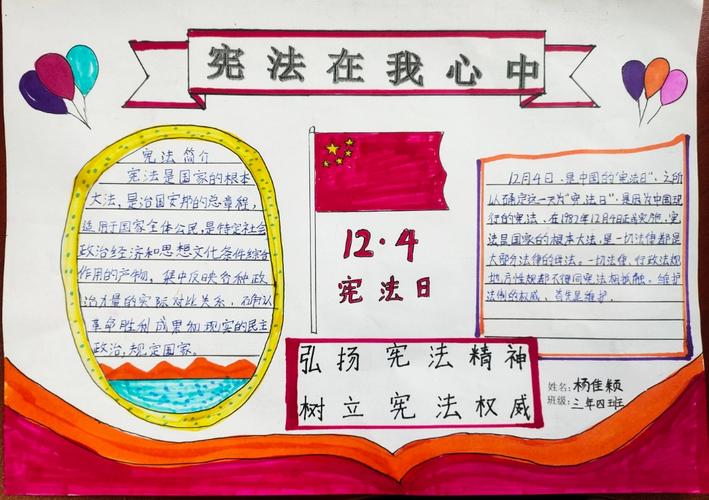 宪法在我心中
宪法简介
宪法是国家的根本
大法,是治国安邦的总章程,
适用于国家全体公民,是特定社会
政治经济和思想文化条件综合
作用的产物,集中反映各种政
治力量的实际对比关系,
革命胜利成果和现实的民主
政治,规定国家.
12·4
宪法日
12月4日、是中国的"宪法日",之所
以确定这一天为"宪法日",是因为中国现
行的宪法、在1982年12月4日正式实施,宪
法是国家的根本大法,是一切法律都是
大部分法律的母法。一切法律,行政法规
地方性规都不得同宪法相抵触。维护
法律的权威、首先是维护.
弘扬宪法精神
树立宪法权威
姓名:杨佳颖
班级:三年四班